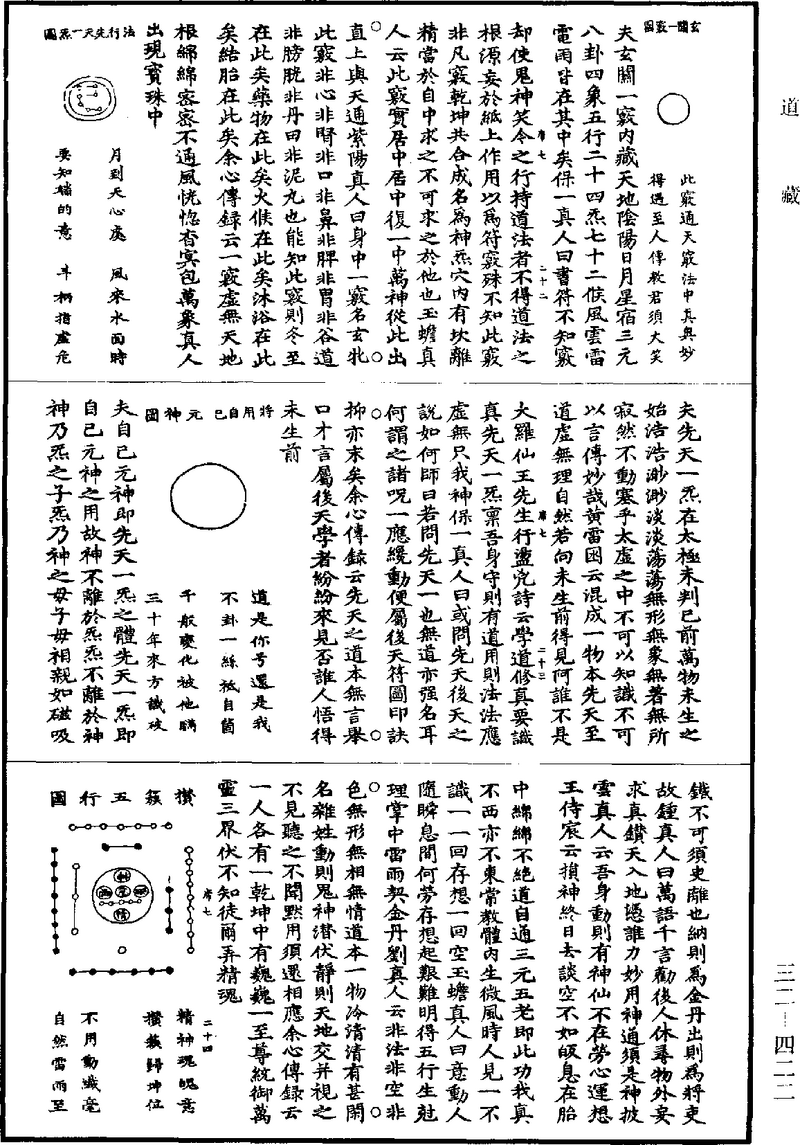 道藏
玄關一竅圖
此竅通天竅法中真奧妙
得遇至人傳教君須大笑
夫玄關一竅內藏天地陰陽日月星宿三元
八卦四象五行二十四炁七十二候風雲雷
電雨皆在其中矣保一真人曰書符不知竅
却使鬼神笑今之行持道法者不得道法之
席七
二十二
根源妄於紙上作用以為符竅殊不知此竅
非凡竅乾坤共合成名為神炁穴內有坎離
精當於自中求之不可求之於他也玉蟾真
人云此竅實居中居中復一中萬神從此出
直上與天通紫陽真人曰身中一竅名玄牝
此竅非心非腎非口非鼻非脾非胃非谷道
非膀胱非丹田非泥丸也能知此竅則冬至
在此矣藥物在此矣火候在此矣沐浴在此
矣結胎在此矣余心傳錄云一竅虛無天地
根綿綿密密不通風恍惚杳冥包萬象真人
出現寶珠中
法行先天一炁圖
月到天心處 風來水面時
要知端的意 斗柄指虛危
夫先天一炁在太極未判已前萬物未生之
始浩浩渺渺淡淡蕩蕩無形無象無著無所
寂然不動塞乎太虛之中不可以知識不可
以言傳妙哉黃雷困云混成一物本先天至
道虛無理自然若向未生前得見何誰不是
大羅仙王先生行盪兇詩云學道修真要識
席七
二十三
真先天一炁稟吾身守則有道用則法法應
虛無只我神保一真人曰或問先天後天之
說如何師曰若問先天一也無道亦强名耳
何謂之諸呪一應纔動便屬後天符圖印訣
抑亦末矣余心傳錄云先天之道本無言舉
口才言屬後天學者紛紛來見否誰人悟得
未生前
將用自己元神圖
道是你兮還是我
不卦一絲祗自箇
千般變化被他瞞
三十年來方識破
夫自己元神即先天一炁之體先天一炁即
自己元神之用故神不離於炁炁不離於神
神乃炁之子炁乃神之母子母相親如磁吸
鐵不可須臾離也納則為金丹出則為將吏
故鍾真人曰萬語千言勸後人休尋物外妄
求真鑽天入地憑誰力妙用神通須是神披
雲真人云吾身動則有神仙不在勞心運想
王侍宸云損神終日去談空不如皈息在胎
中綿綿不絕道自通三元五老即此功我真
不西亦不東常教體內生微風時人見一不
識一一回存想一回空玉蟾真人曰意動人
隨瞬息間何勞存想起艱難明得五行生尅
理掌中雷雨契金丹劉真人云非法非空非
色無形無相無情道本一物冷清清有甚閑
名雜姓動則鬼神潛伏靜則天地交并視之
不見聽之不聞默用須還相應余心傳錄云
一人各有一乾坤中有巍巍一至尊統御萬
靈三界伏不知徒爾弄精魂
席七
二十四
攢簇五行圖
精神魂魄意
攢簇歸坤位
不用動纖毫
自然雷雨至
三二—四二二